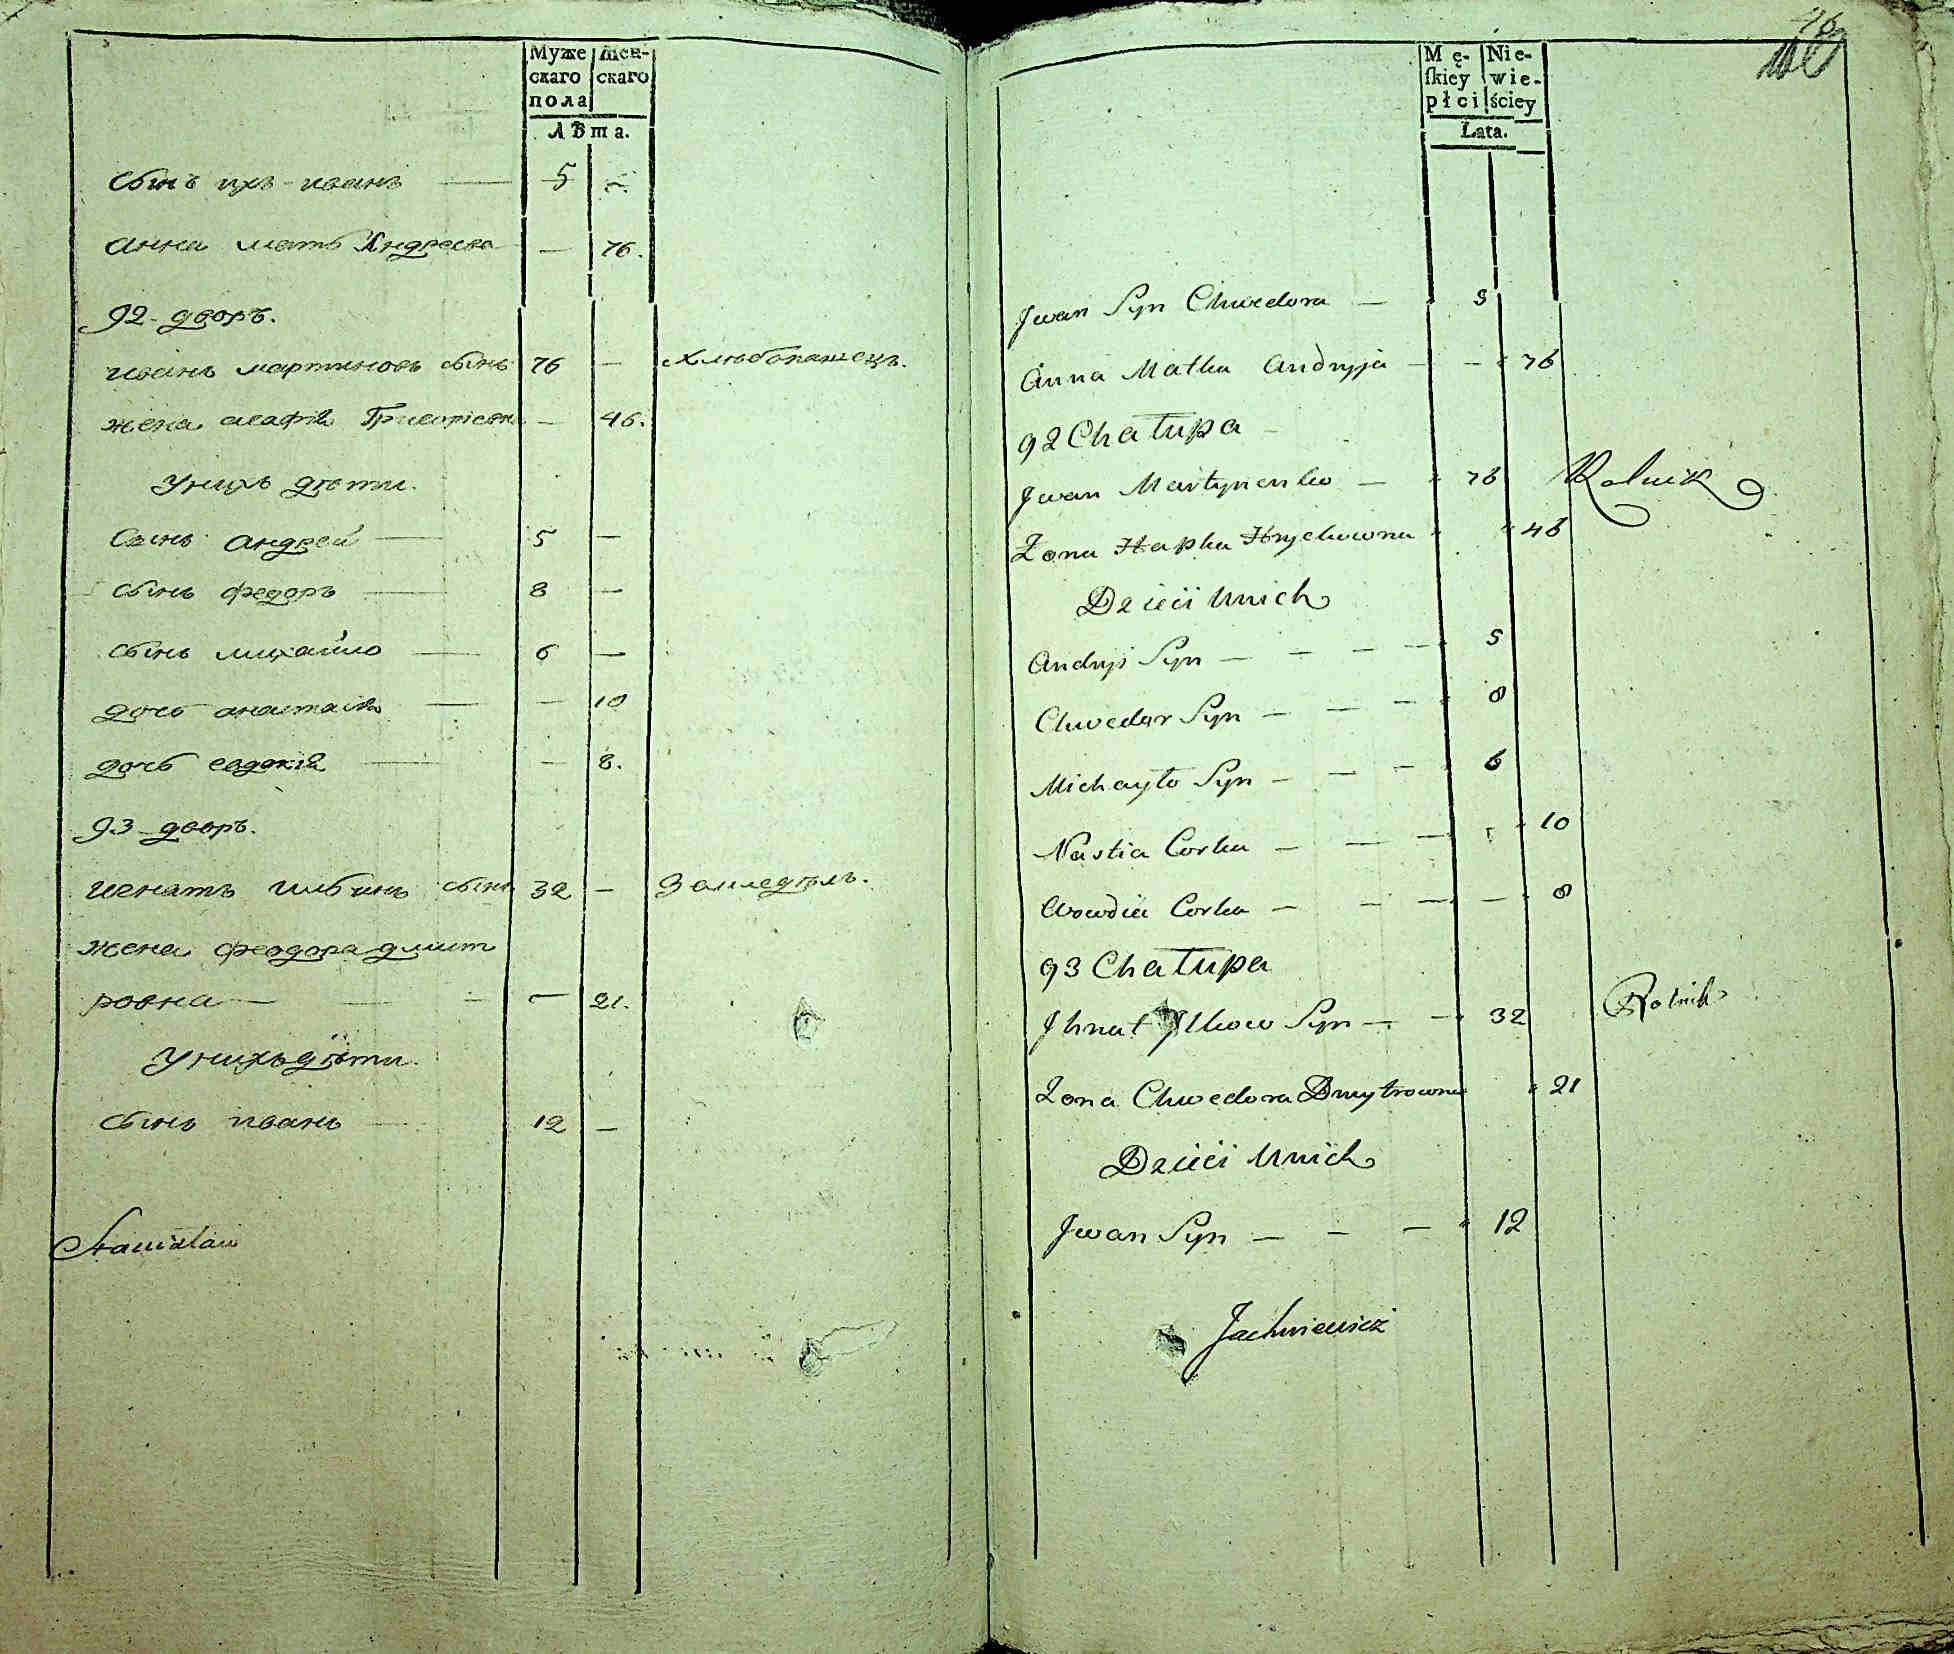 Муже Женскаго
скаго скаго
пола
Лѣта.
сынъ ихъ иванъ — 5 —
анна мать Андреева — 76.
92 дворъ.
иванъ мартиновъ сынъ 76 — хлѣбопашецъ.
жена агафія Григоріевна — 46.
У нихъ дѣти.
сынъ андрей — 5 —
сынъ федоръ — 8 —
сынъ михайло — 6 —
дочь анастасія — — 10
дочь евдокія — — 8.
93 дворъ.
игнатъ ильинъ сынъ 32 — Землед
жена феодора дмит
ровна — — 21.
У нихъ дѣти.
сынъ иванъ — 12 —
Stanisław
Mę- Nie-
ſkiey wie-
płci ściey
Lata.
Jwan Syn Chwedora — 5
Anna Matka Andryja — — 76
92 Chałupa
Jwan Martynenko — 76 Rolnik
Żona Hapka Hrychowna 46
Dzieci Unich
Andryi Syn — — — — 5
Chwedor Syn — — — 8
Michayło Syn — — — 6
Nastia Corka — — — 10
Owodia Corka — — — — 8
93 Chałupa
Jhnat Jlkow Syn — — 32 Rolnik
Żona Chwedora Dmytrowna 21
Dzieci Unich
Jwan Syn — — — 12
Jachniewicz